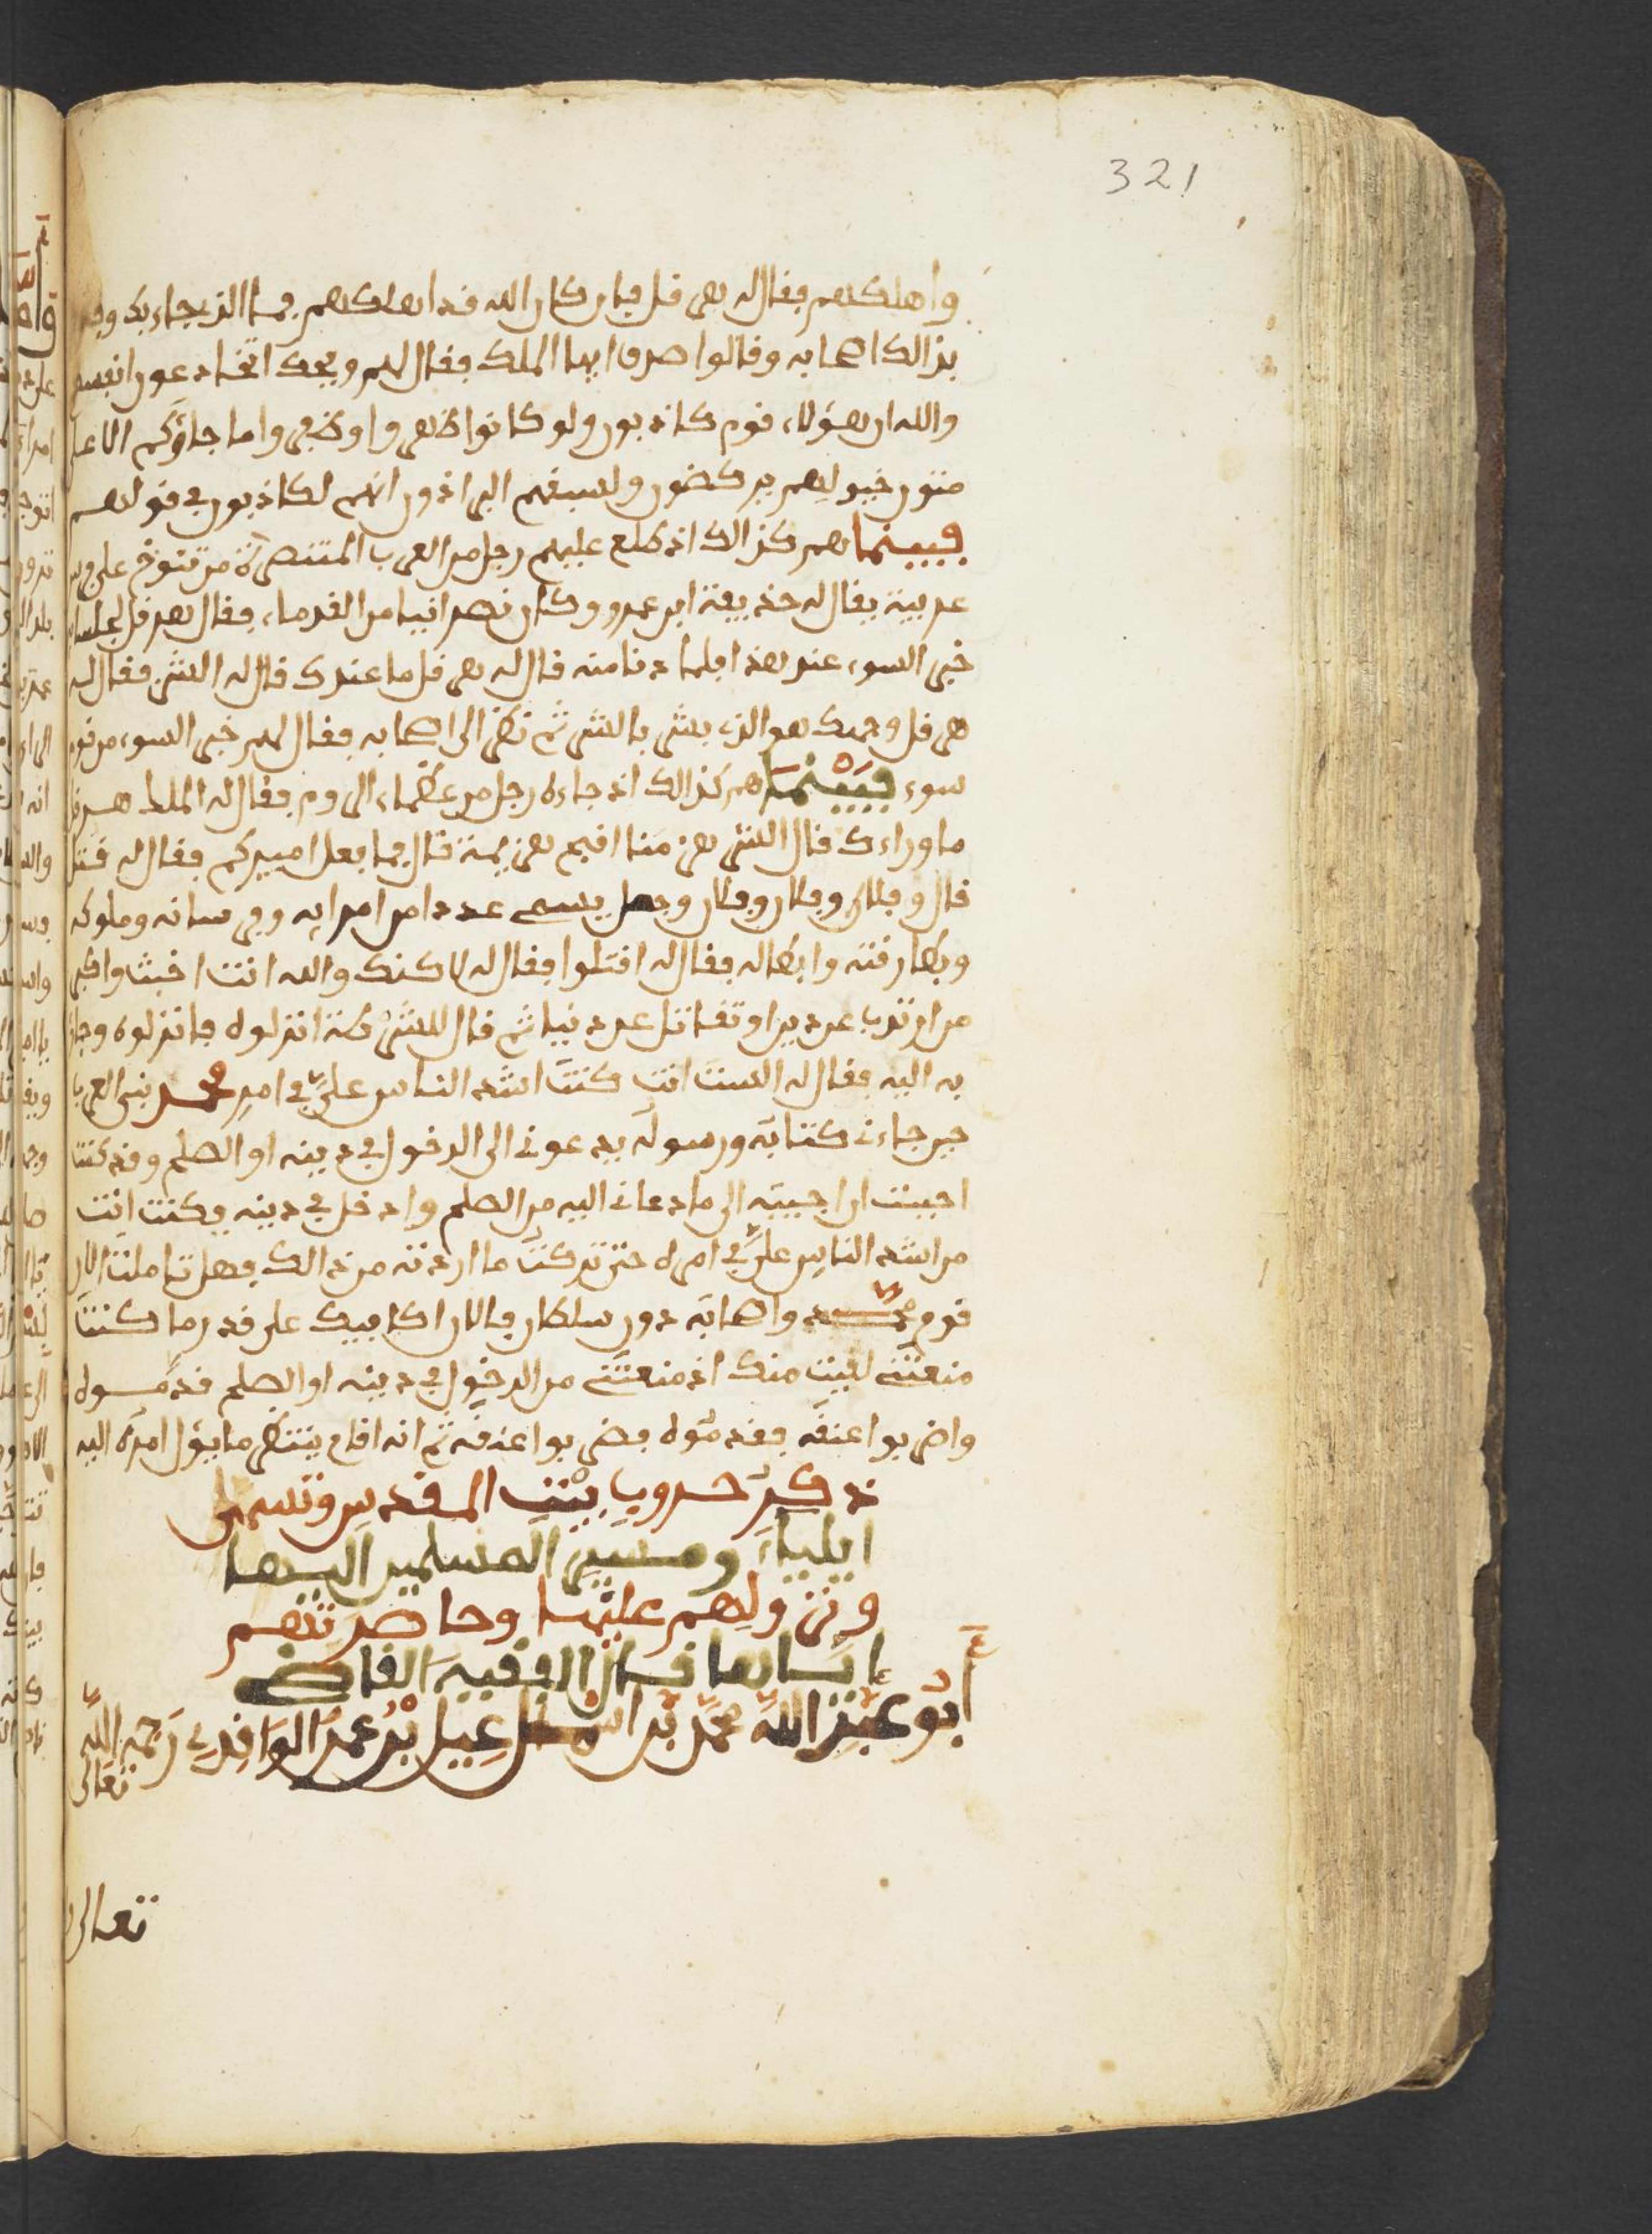 321
واهلكهم فقال له هرقل فان كان الله قد اهلكهم فما الذي جاء بك وفر
بذالك اصحابه وقالوا صدق ايها الملك فقال لهم ويحك اتخادعون انفسكم
والله ان هؤلاء قوم كاذبون ولو كانوا ظهروا وظفروا ما جاؤكم الا على
متون خيولهم يركضون ولسبقهم البراذون انهم لكاذبون في قولهم
فبينما هم كذالك اذ طلع عليهم رجل من العرب المتنصرة من تنوخ على فرس
عربية يقال له حذيفة ابن عمرو وكان نصرانيا من القدماء فقال هرقل لجلسائه
خبر السوء عند هذا فلما دنا منه قال له هرقل ما عندك قال له الشر فقال له
هرقل وجهك هو الذي بشر بالشر ثم نظر الى اصحابه فقال لهم خبر السوء من قوم
سوء فبينما هم كذالك اذ جاءه رجل من عظماء الروم فقال له الملك هرقل
ما وراءك قال الشر هزمنا اقبح هزيمة قال فما فعل اميركم فقال له قتل
قال وفلان وفلان وفلان وجعل يسمى عددا من امرايه وفرسانه وملوكه
وبطارقته وابطاله فقال له اقتلوا فقال له لاكنك والله انت اخبث واكبر
من ان تذب عن دين او تقاتل عن دنيا ثم قال للشرطة انزلوه فانزلوه وجاؤا
به اليه فقال له الست انت كنت اشد الناس علي في امر محمد نبي العرب
حين جاءني كتابه ورسوله يدعوني الى الدخول في دينه او الصلح وقد كنت
احببت ان اجيبه الى ما دعاني اليه من الصلح وادخل في دينه فكنت انت
من اشد الناس علي في امره حتى تركت ما اردته من ذالك فهل قاتلت الان
قوم محمد واصحابه دون سلطاني فالان اكافيك على قدر ما كنت
منعتني لقيت منك اذ منعتني من الدخول في دينه او الصلح قدموه
واضربوا عنقه فقدموه فضربوا عنقه ثم انه اقام ينتظر ما يؤل امره اليه
ذكر حروب بيت المقدس وتسمى
ايلياء ومسير المسلمين اليها
ونزولهم عليها وحاصرتهم
اياها قال الفقيه القاضي
ابو عبد الله محمد بن اسماعيل بن عمر الواقدي رحمه الله
تعالى
تعالى